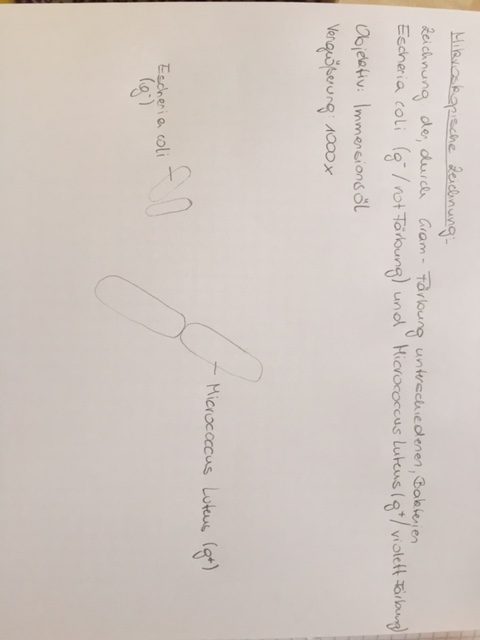 Mikroskopische Zeichnung:
Zeichnung der, durch Gram-Färbung unterschiedenen, Bakterien
Escheria coli (g⁻/rot Färbung) und Micrococcus Luteus (g⁺/violett Färbung)
Objektiv: Immersionsöl
Vergrößerung: 1000x
Escheria coli
(g⁻)
Micrococcus Luteus (g⁺)